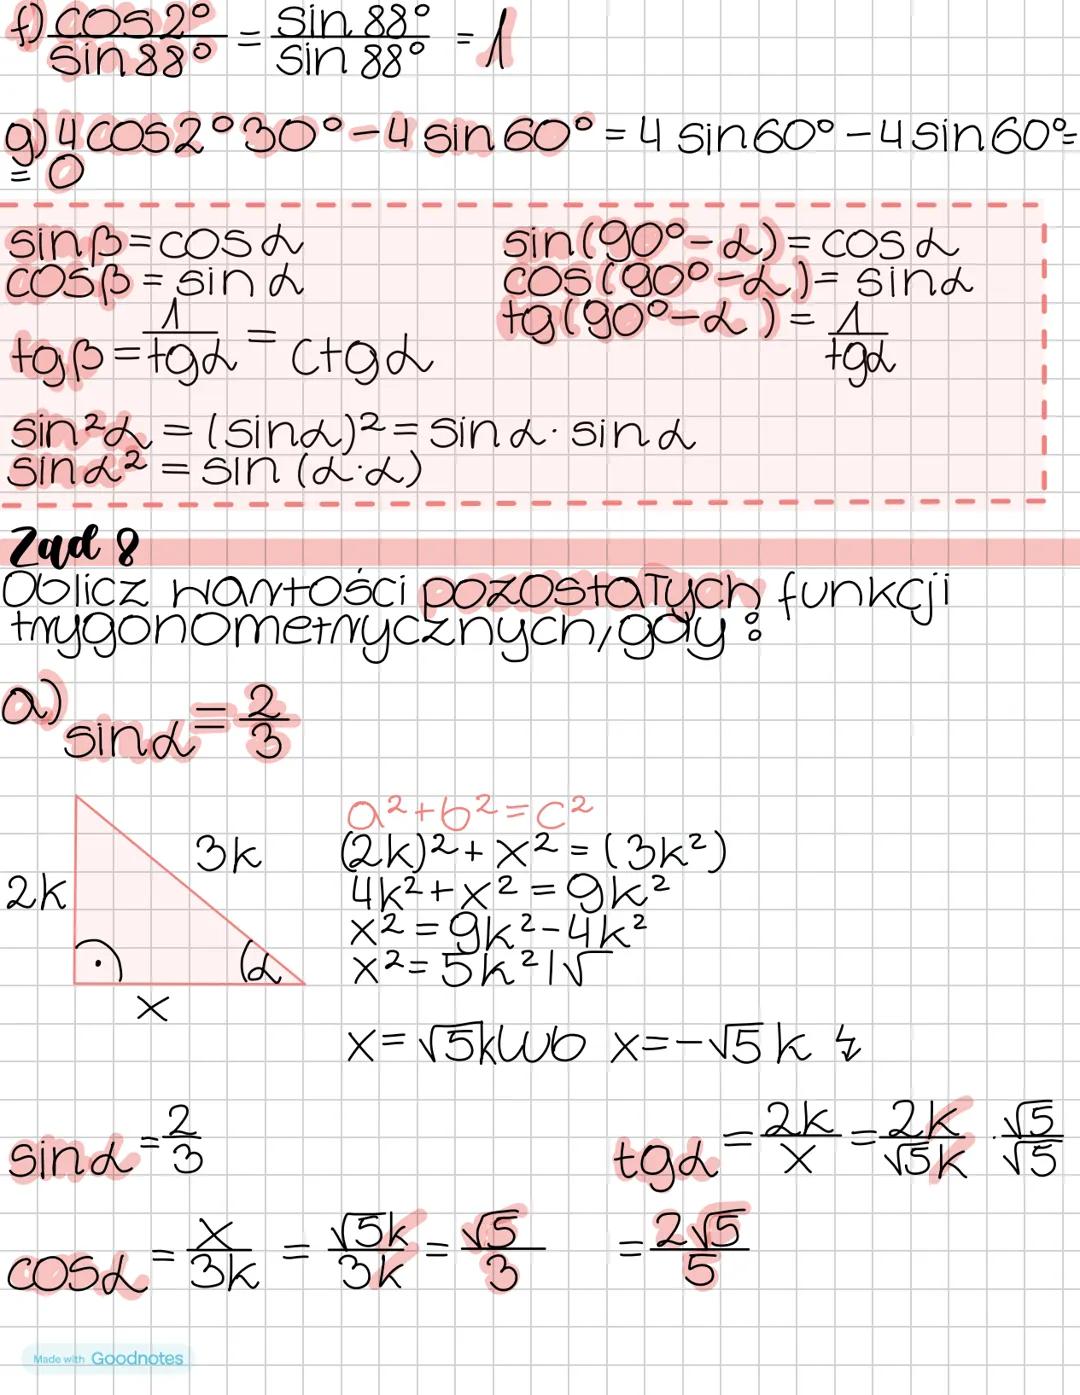 f) cos2°/sin88° = sin 88°/sin 88° = 1
g) 4cos2°30° - 4 sin 60° = 4 sin60° - 4sin60° =
= 0
sinβ = cosα
cosβ = sin α
tgβ = 1/tgα = ctgα
sin(90°-α) = cosα
cos(90°-α) = sinα
tg(90°-α) = 1/tgα
sin²α = (sinα)² = sinα · sinα
sinα² = sin (α·α)
Zad 8
Oblicz wartości pozostałych funkcji
trygonometrycznych, gdy:
a) sinα = 2/3
2k
3k
α
x
a² + b² = c²
(2k)² + x² = (3k²)
4k² + x² = 9k²
x² = 9k² - 4k²
x² = 5k² |√
x = √5k lub x = -√5 k ↯
sinα = 2/3
cosα = x/3k = √5k/3k = √5/3
tgα = 2k/x = 2k/√5k · √5/√5
= 2√5/5
Made with Goodnotes